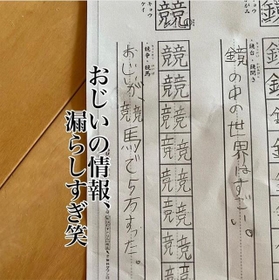 おじいの情報、
漏らしすぎ笑
競
キョウ
ケイ
・競争・競馬
競
競
競
競
競
競
競
おじいが、競馬で5万すった。
鏡
・鏡台・鏡開き
鏡の中の世界はすごい。